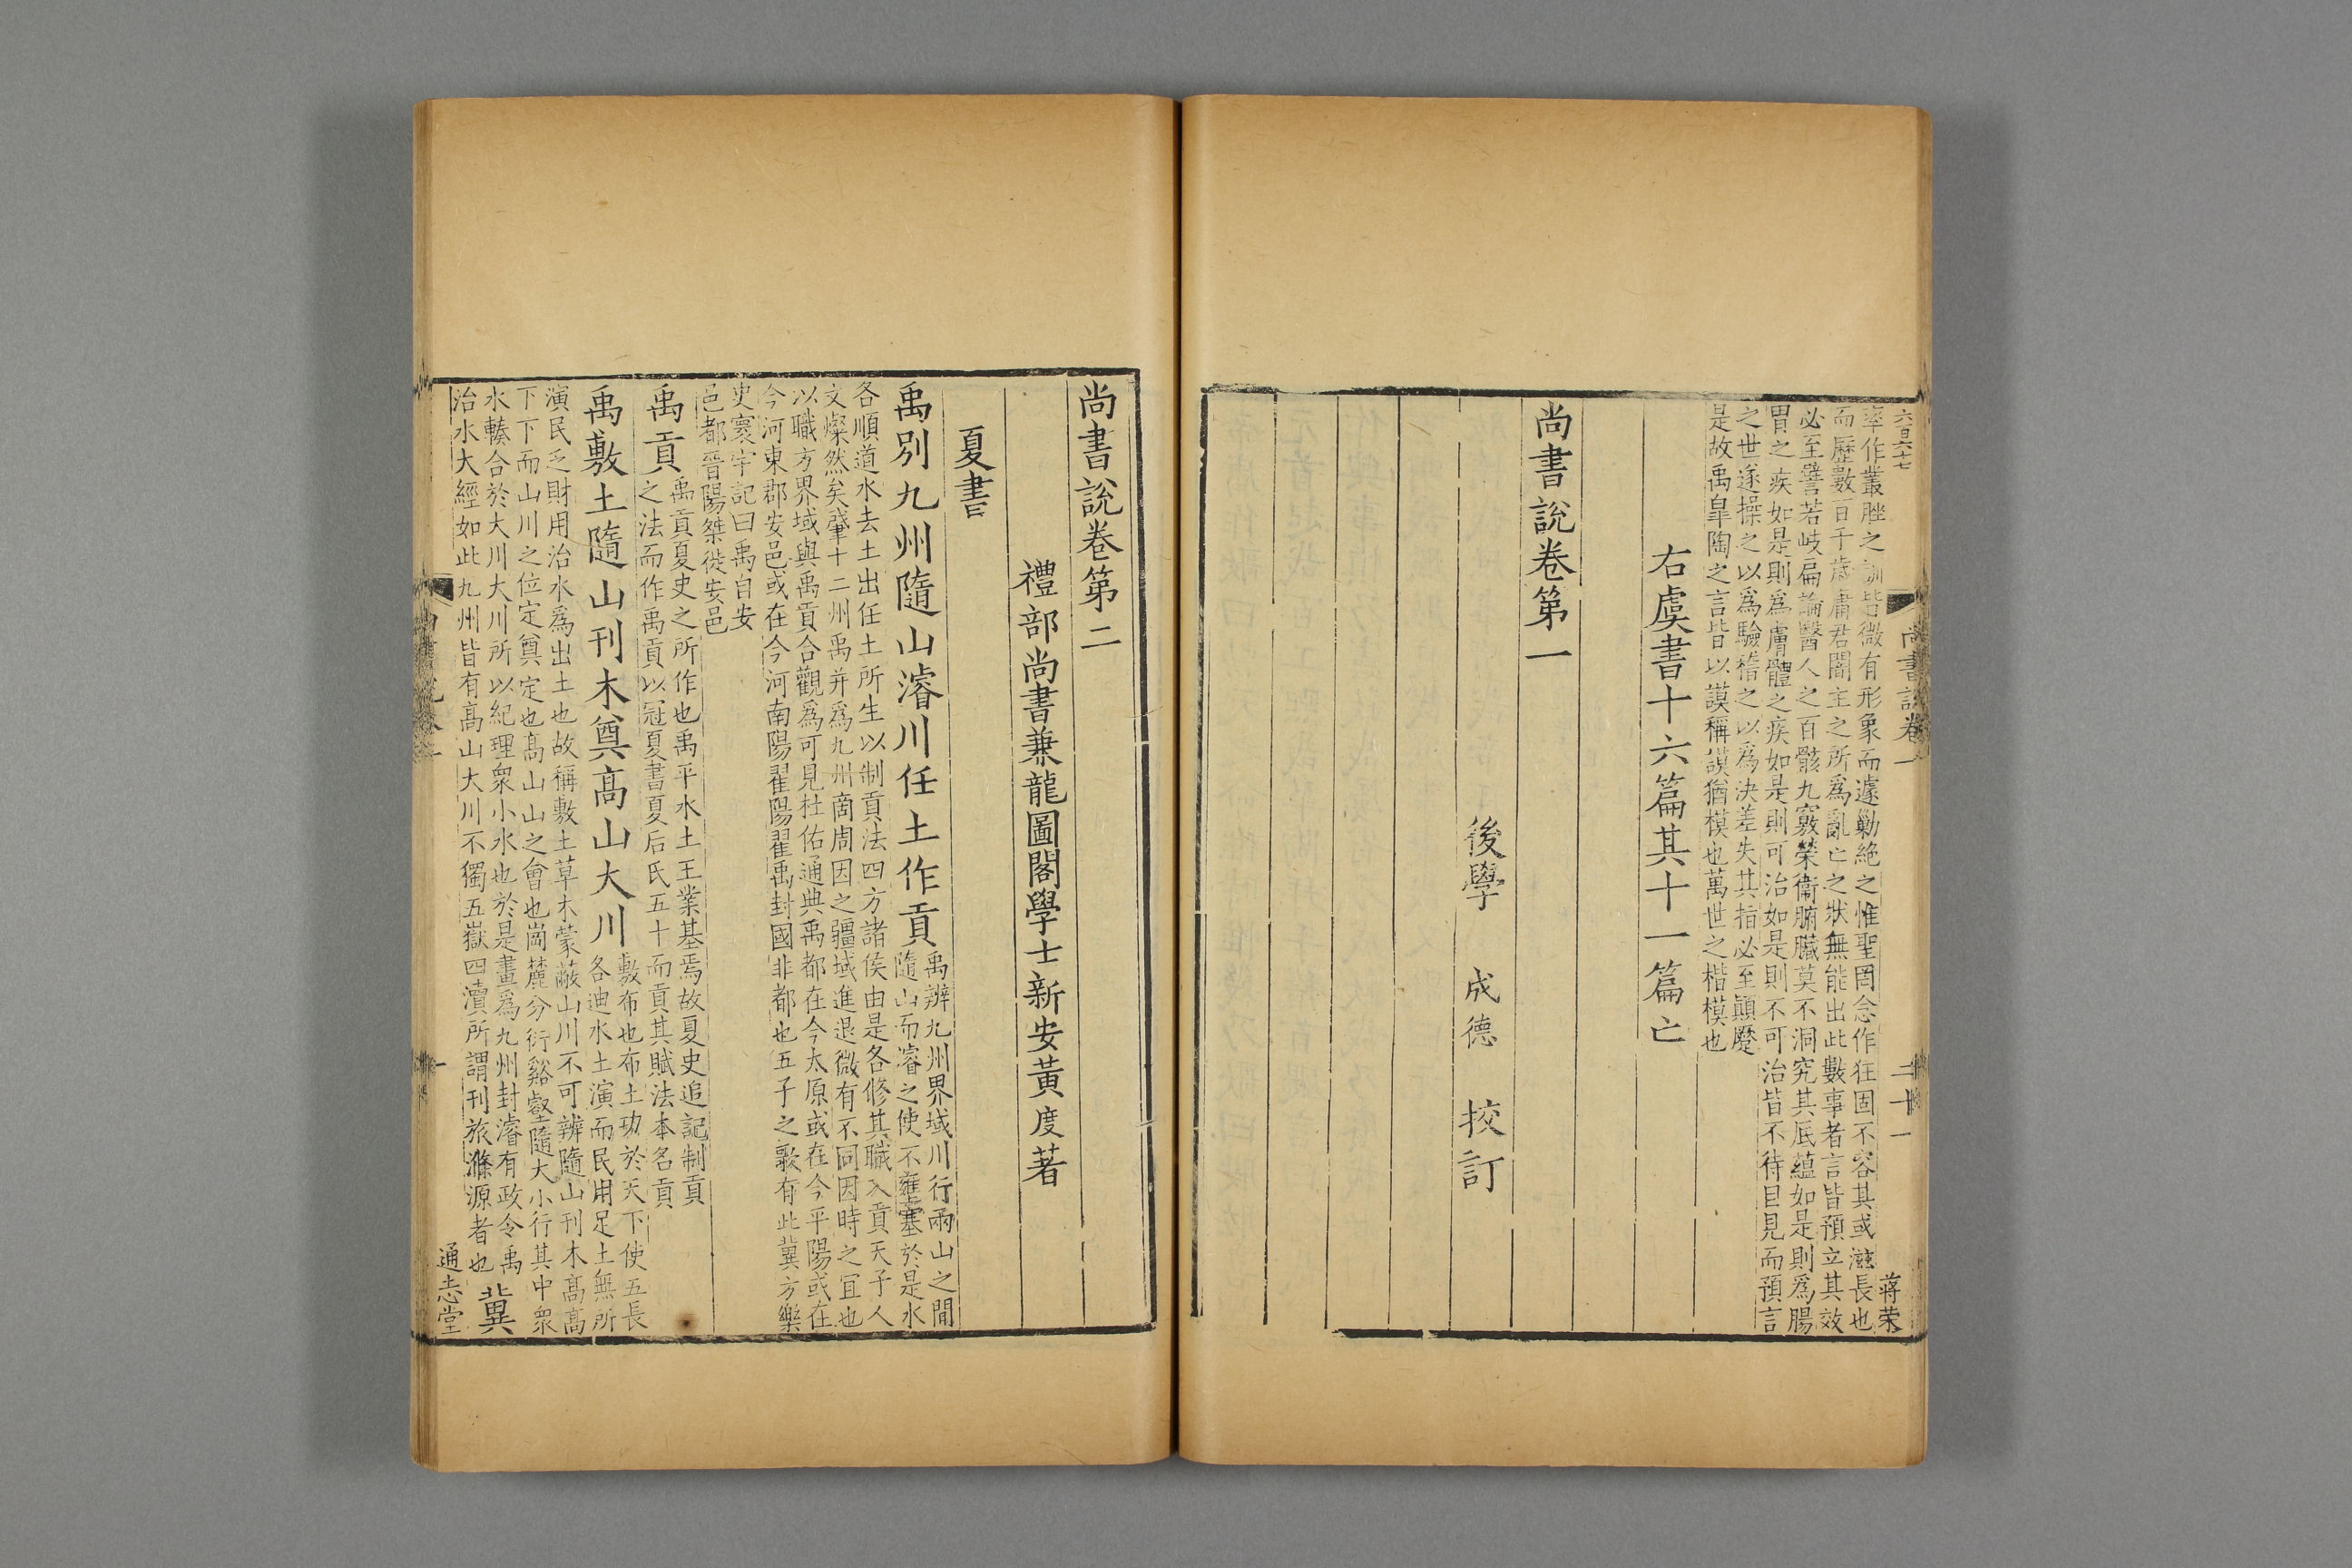 六百六十七
率作叢脞之訓皆微有形象而遽勦絶之惟聖罔念作狂固不容其或滋長也
而歷數百千歳庸君闇主之所爲亂亡之狀無能出此數事者言皆預立其效
必至譬若岐扁論醫人之百骸九竅榮衞腑臟莫不洞究其厎蘊如是則爲腸
胃之疾如是則爲膚體之疾如是則可治如是則不可治皆不待目見而預言
之世遂操之以爲驗稽之以爲決差失其指必至顚蹷
是故禹臯陶之言皆以謨稱謨猶模也萬世之楷模也
右虞書十六篇其十一篇亡
尚書說卷第一
後學 成德 挍訂
尚書說卷一
二十一
蒋荣
尚書說卷第二
禮部尚書兼龍圖閣學士新安黃度著
夏書
禹別九州隨山濬川任土作貢
禹辨九州界域川行兩山之間
隨山而濬之使不壅塞於是水
各順道水去土出任土所生以制貢法四方諸侯由是各修其職入貢天子人
文燦然矣肇十二州禹并爲九州商周因之疆域進退微有不同因時之宜也
以職方界域與禹貢合觀爲可見杜佑通典禹都在今太原或在今平陽或在
今河東郡安邑或在今河南陽翟陽翟禹封國非都也五子之歌有此冀方樂
史寰宇記曰禹自安
邑都晉陽桀徙安邑
禹貢
禹貢夏史之所作也禹平水土王業基焉故夏史追記制貢
之法而作禹貢以冠夏書夏后氏五十而貢其賦法本名貢
禹敷土隨山刊木奠高山大川
敷布也布土功於天下使五長
各迪水土演而民用足土無所
演民乏財用治水爲出土也故稱敷土草木蒙蔽山川不可辨隨山刊木高高
下下而山川之位定奠定也高山山之會也崗麓分衍谿壑隨大小行其中衆
水輳合於大川大川所以紀理衆小水也於是畫爲九州封濬有政令禹
治水大經如此九州皆有高山大川不獨五嶽四瀆所謂刊旅滌源者也
冀
一
通志堂